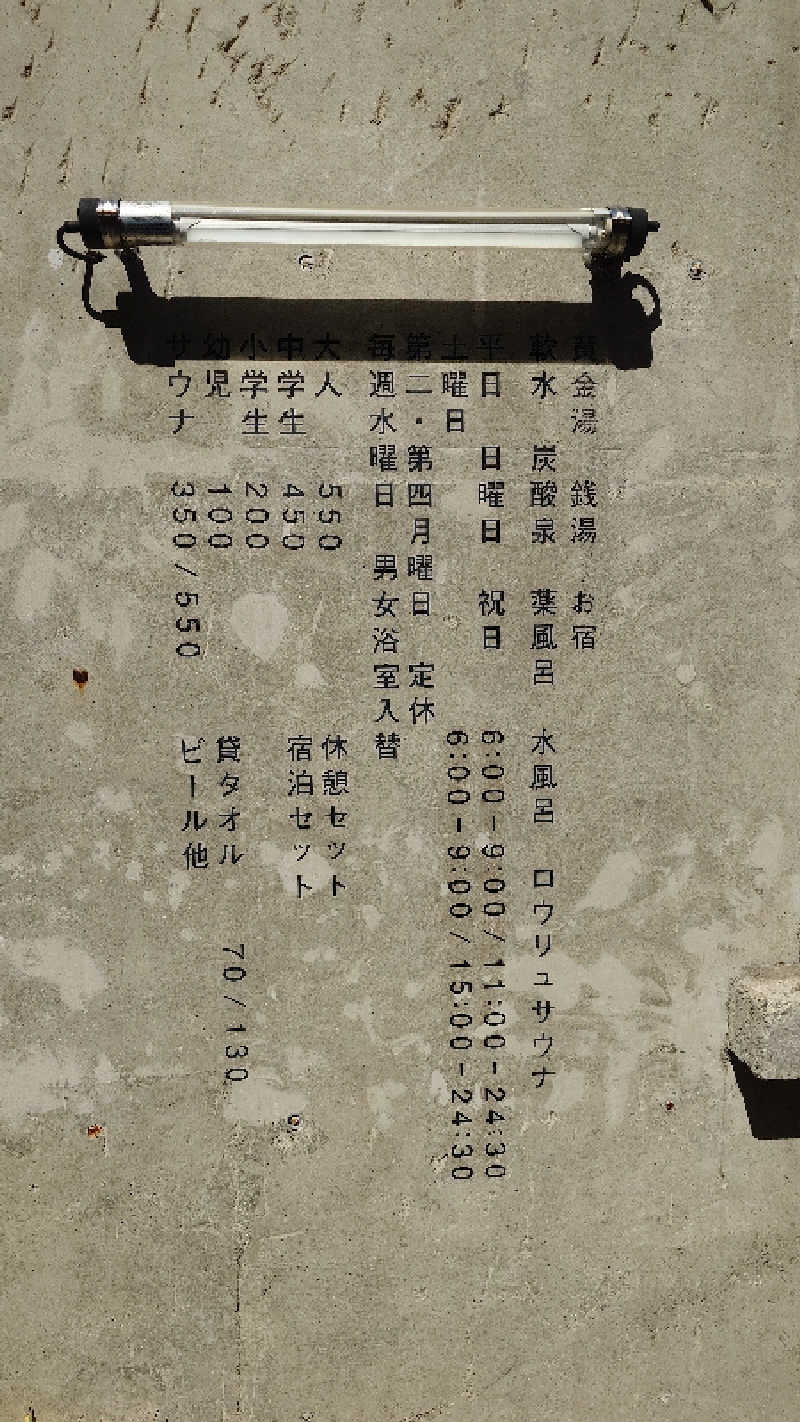 黄金湯　銭湯　お宿
軟水　炭酸泉　薬風呂　水風呂　ロウリュサウナ
平日　日曜日　祝日　6:00-9:00/11:00-24:30
土曜日　6:00-9:00/15:00-24:30
第二・第四月曜日　定休
毎週水曜日　男女浴室入替
大人　550　休憩セット
中学生　450　宿泊セット
小学生　200
幼児　100　貸タオル　70/130
サウナ　350/550　ビール他